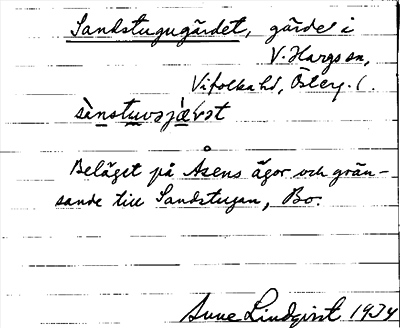 Sandstugugärdet, gärde i
V. Hargs sn,
Vifolka hd, Österg. l.
sànstuvsjæ̀ɽət
Beläget på Åsens ägor och grän-
sande till Sandstugan, Bo.
Sune Lindqvist 1934